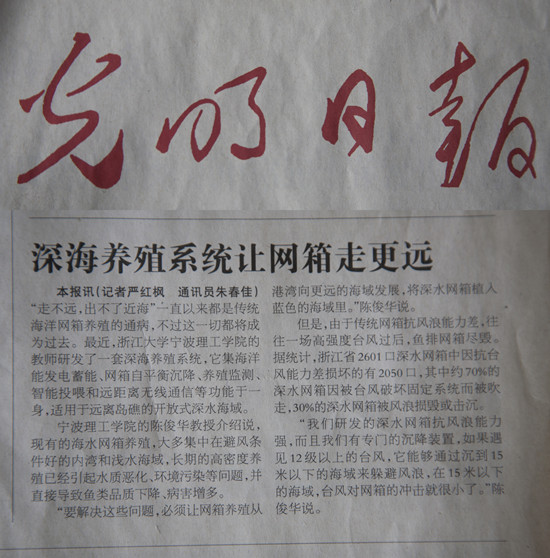 光明日報
深海养殖系统让网箱走更远
本报讯(记者严红枫 通讯员朱春佳)
“走不远，出不了近海”一直以来都是传统
海洋网箱养殖的通病，不过这一切都将成
为过去。最近，浙江大学宁波理工学院的
教师研发了一套深海养殖系统，它集海洋
能发电蓄能、网箱自平衡沉降、养殖监测、
智能投喂和远距离无线通信等功能于一
身，适用于远离岛礁的开放式深水海域。
宁波理工学院的陈俊华教授介绍说，
现有的海水网箱养殖，大多集中在避风条
件好的内湾和浅水海域，长期的高密度养
殖已经引起水质恶化、环境污染等问题，并
直接导致鱼类品质下降、病害增多。
“要解决这些问题，必须让网箱养殖从
港湾向更远的海域发展，将深水网箱植入
蓝色的海域里。”陈俊华说。
但是，由于传统网箱抗风浪能力差，往
往一场高强度台风过后，鱼排网箱尽毁。
据统计，浙江省2601口深水网箱中因抗台
风能力差损坏的有2050口，其中约70%的
深水网箱因被台风破坏固定系统而被吹
走，30%的深水网箱被风浪损毁或击沉。
“我们研发的深水网箱抗风浪能力
强，而且我们有专门的沉降装置，如果遇
见12级以上的台风，它能够通过沉到15
米以下的海域来躲避风浪，在15米以下
的海域，台风对网箱的冲击就很小了。”陈
俊华说。